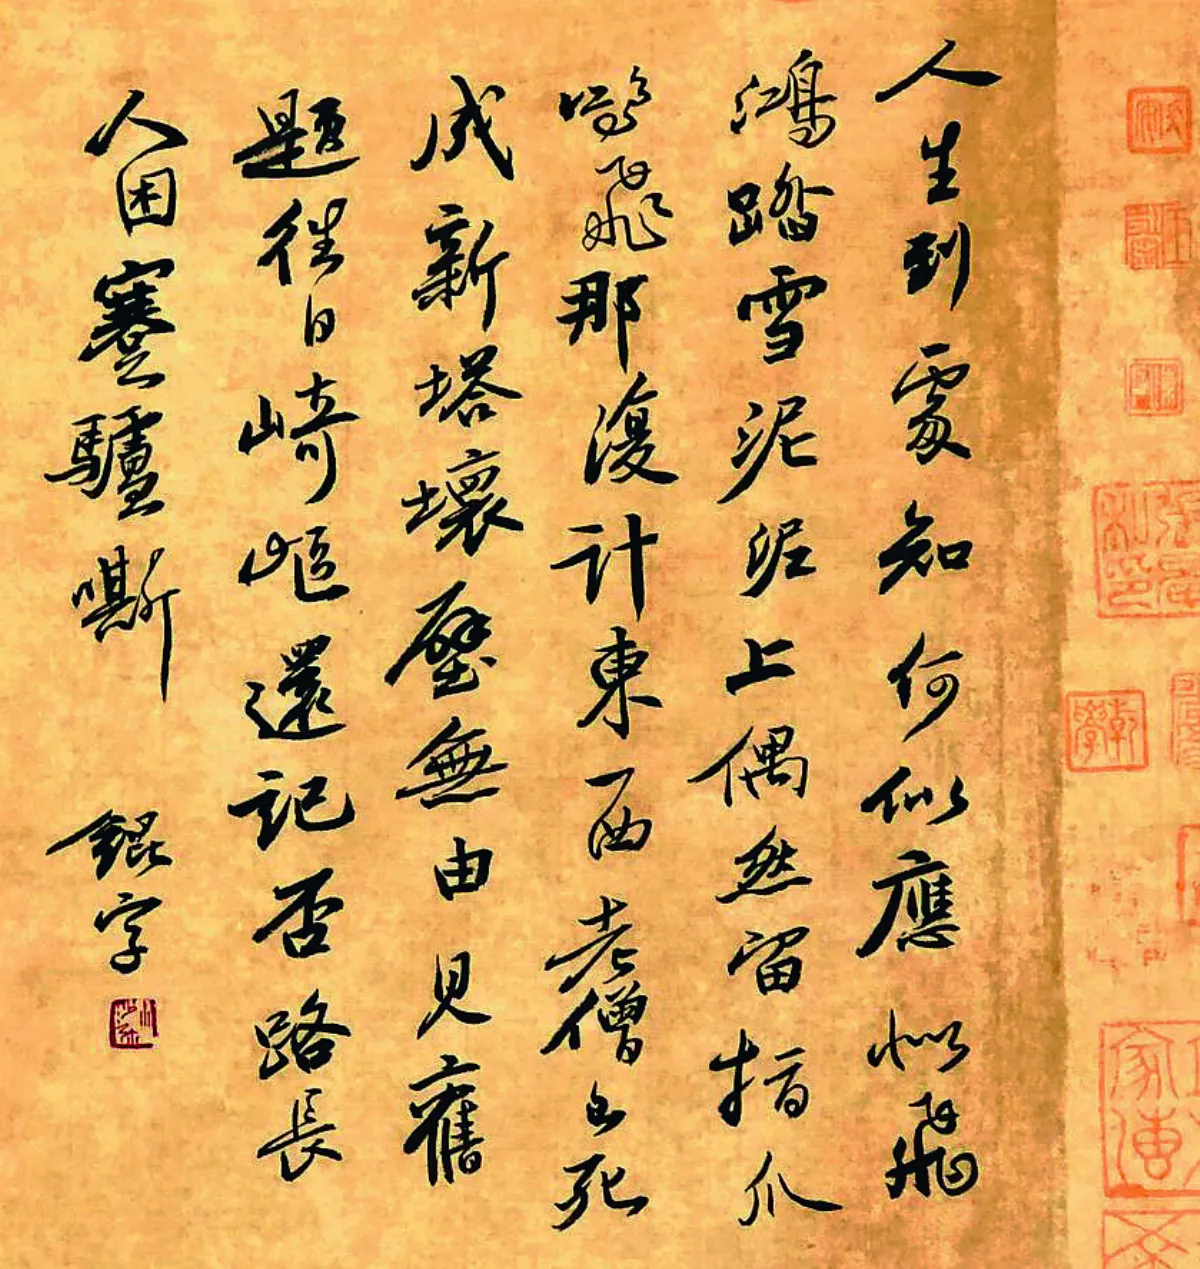 人生到處知何似應似飛
鴻踏雪泥泥上偶然留指爪
鴻飛那復計東西老僧已死
成新塔壞壁無由見舊
題往日崎嶇還記否路長
人困蹇驢嘶
錕字